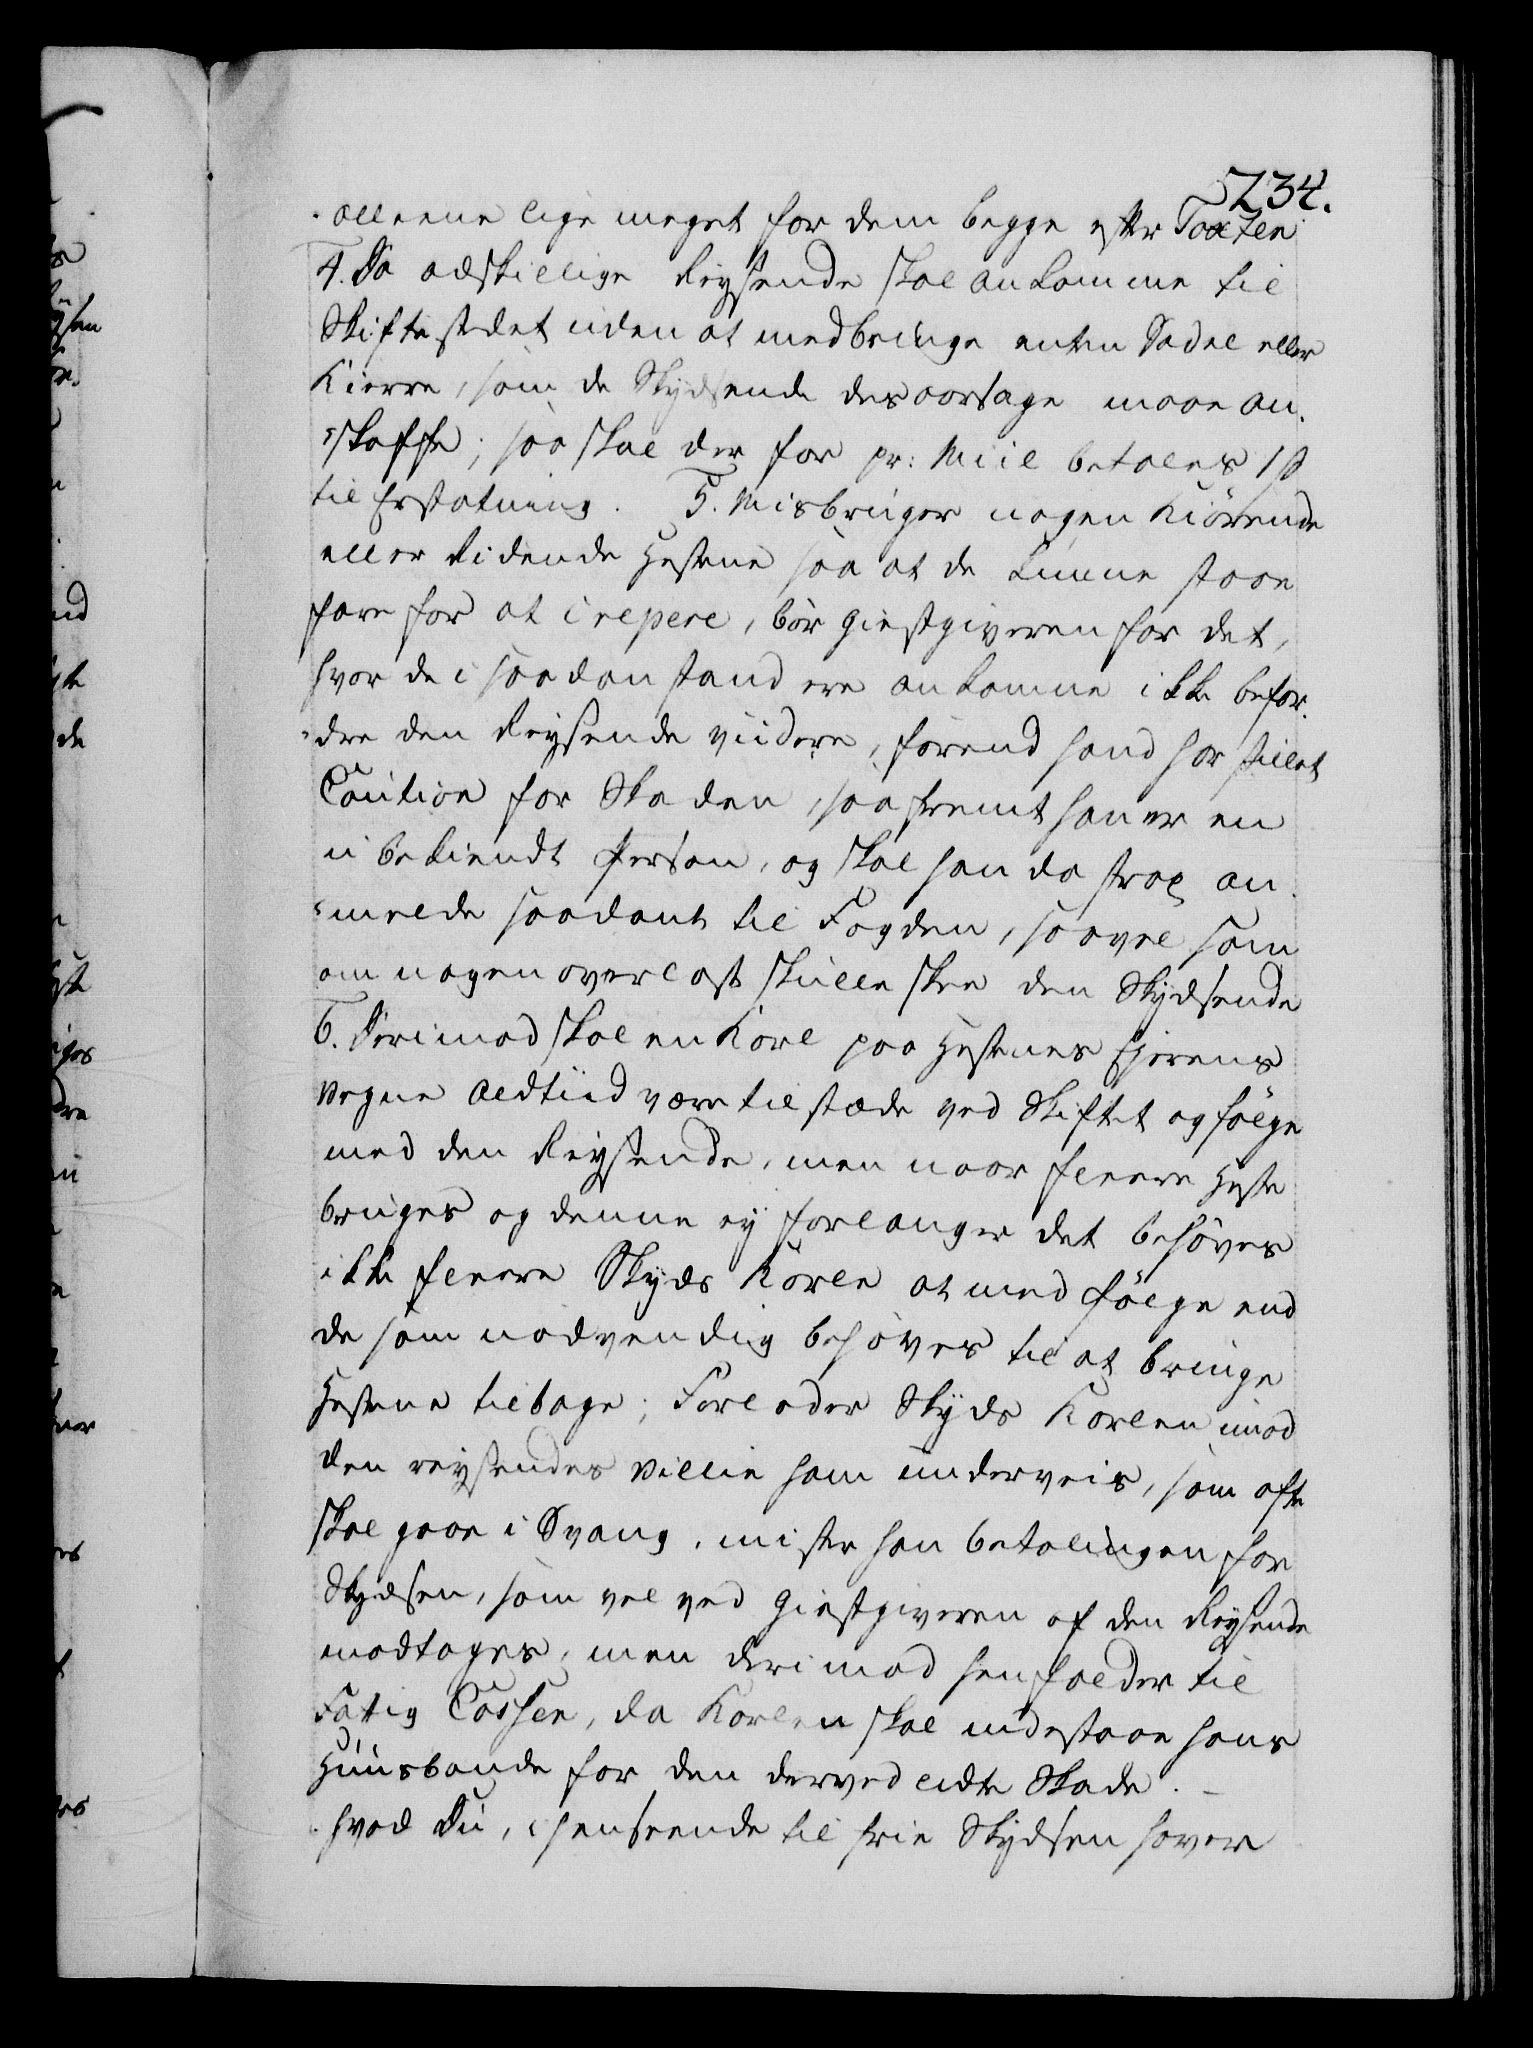 5234.
alleene lige meget for dem begge efter Taxten
4. Da adskillige Reysende skal ankomme til
Skiftestedet uden at medbringe enten Sadel eller
Kierre, som de Skydsende desaarsage maae an-
skaffe; saa skal der for pr: Miil betales 1 ß
til Erstatning. 5. Misbruger nogen Kiörende
eller Ridende Hestene saa at de kunne staae
fare for at crepere, bör Giestgiveren for det,
hvor de i saadan stand ere ankomne ikke befor-
dre den Reysende viidere, förend hand har stillet
Caution for Skaden, saafremt han er en
ubekiendt Person, og skal han da strax an-
melde saadant til Fogden, saavel som
om nogen overlast skulle skee den Skydsende
6. Derimod skal en Karl paa Hestenes Ejerens
Vegne altiid være tilstæde ved Skiftet og fölge
med den Reysende, men naar fleere Heste
bruges og denne ey forlanger det behöves
ikke fleere Skyds Karle at med fölge end
de som nödvendig behöves til at bringe
Hestene tilbage; Forlader Skyds Karlen imod
den reysendes Villie ham underveis, som ofte
skal gaae i Svang, mister han betalingen for
Skydsen, som vel ved Giestgiveren af den Reysende
modtages, men derimod henfalder til
Fattig Cassen, da Karlen skal indestaae hans
Huusbonde for den derved lidte Skade. –
hvad Du, i henseende til frie Skydsen haver